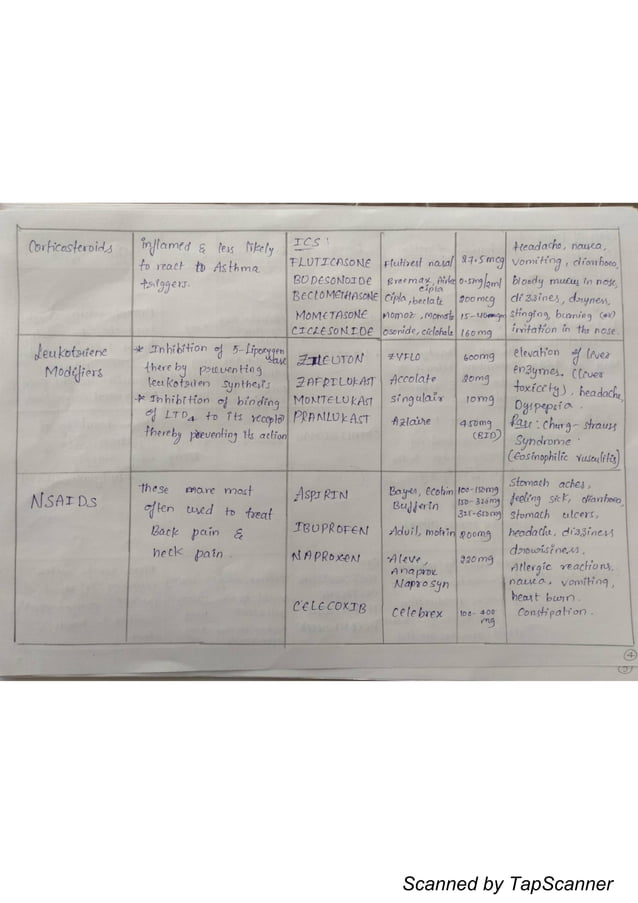 Corticosteroids
inflamed & less likely
to react to Asthma
triggers.
ICS:
FLUTICASONE
BUDESONOIDE
BECLOMETHASONE
MOMETASONE
CICLESONIDE
Flutivest nasal
Breemax,
Cipla
Cipla, beclate
Momaz, momate
osonide, ciclohale
27.5 mcg
0.5mg/2ml
200mcg
160mg
Headache, nausea,
vomiting, diarrhoea,
bloody mucus in nose,
dizzines, dryness,
stinging, burning (or)
irritation in the nose.
Leukotriene
Modifiers
* Inhibition of 5-Lipoxygen
ase
thereby preventing
leukotrien synthesis
* Inhibition of binding
of LTD4 to its receptor
thereby preventing its action
ZILEUTON
ZAFILUKAST
MONTELUKAST
PRANLUKAST
ZYFLO
Accolate
Singulair
Azlaire
600mg
20mg
10mg
450mg
(BID)
elevation of liver
enzymes. (liver
toxicity), headache,
Dyspepsia.
Rare: churg-strauss
Syndrome
(Eosinophilic vasculitis)
NSAIDS
these are most
often used to treat
Back pain &
neck pain.
ASPIRIN
IBUPROFEN
NAPROXEN
CELECOXIB
Bayer, Ecotrin
Bufferin
Advil, motrin
Aleve,
Anaprox
Naprosyn
Celebrex
100-150mg
325-650mg
200mg
220mg
100-400
mg
Stomach aches,
feeling sick, diarrhoea,
stomach ulcers,
headache, dizziness
drowisiness,
Allergic reactions,
nausea, vomiting,
heart burn.
Constipation.
4
5
Scanned by TapScanner